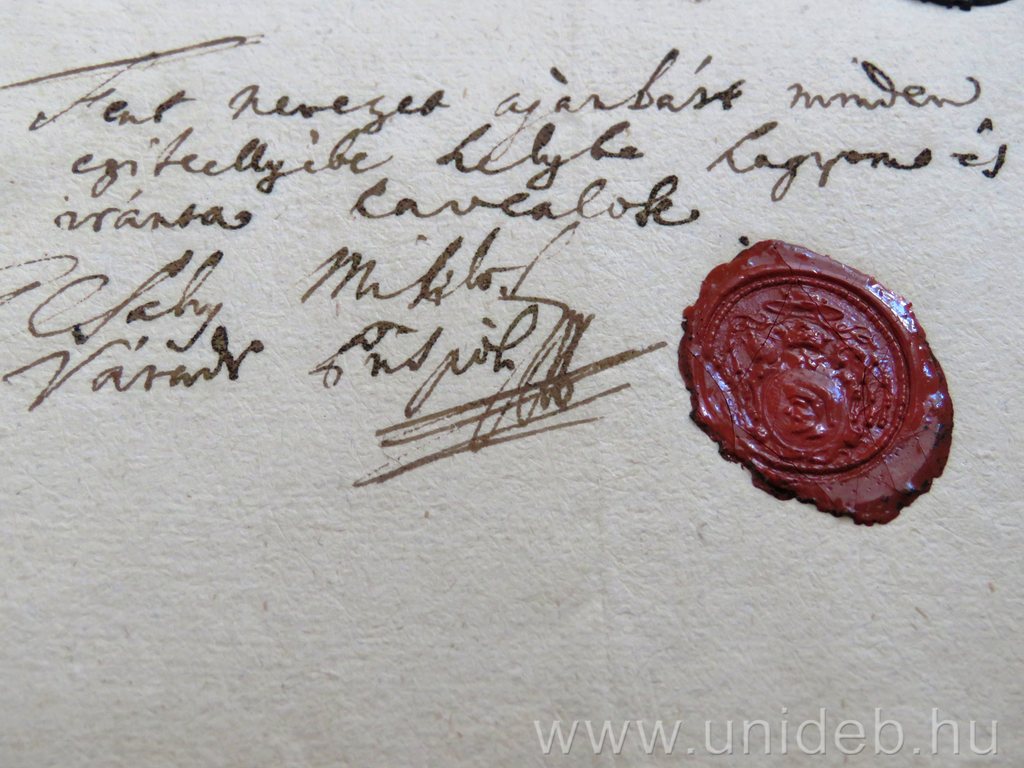 Fent nevezet ajánlást minden
egi helybe hagyom és
iránta cavealok
Csaky Miklos
Váradi Püspök
www.unideb.hu